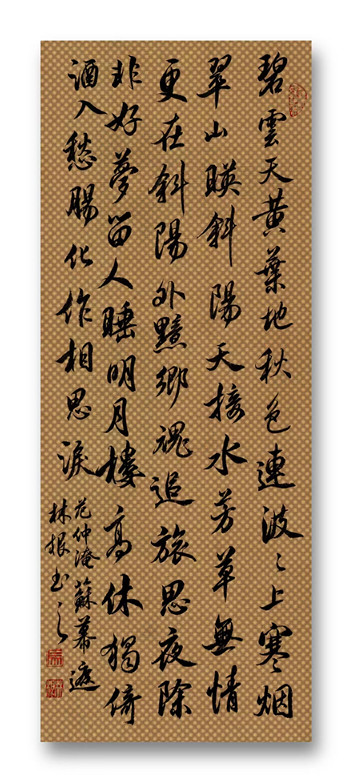 碧雲天黃葉地秋色連波〻上寒烟
翠山暎斜陽天接水芳草無情
更在斜陽外黯鄉魂追旅思夜除
非好夢留人睡明月樓高休獨倚
酒入愁腸化作相思淚
范仲淹蘇幕遮
林根书之